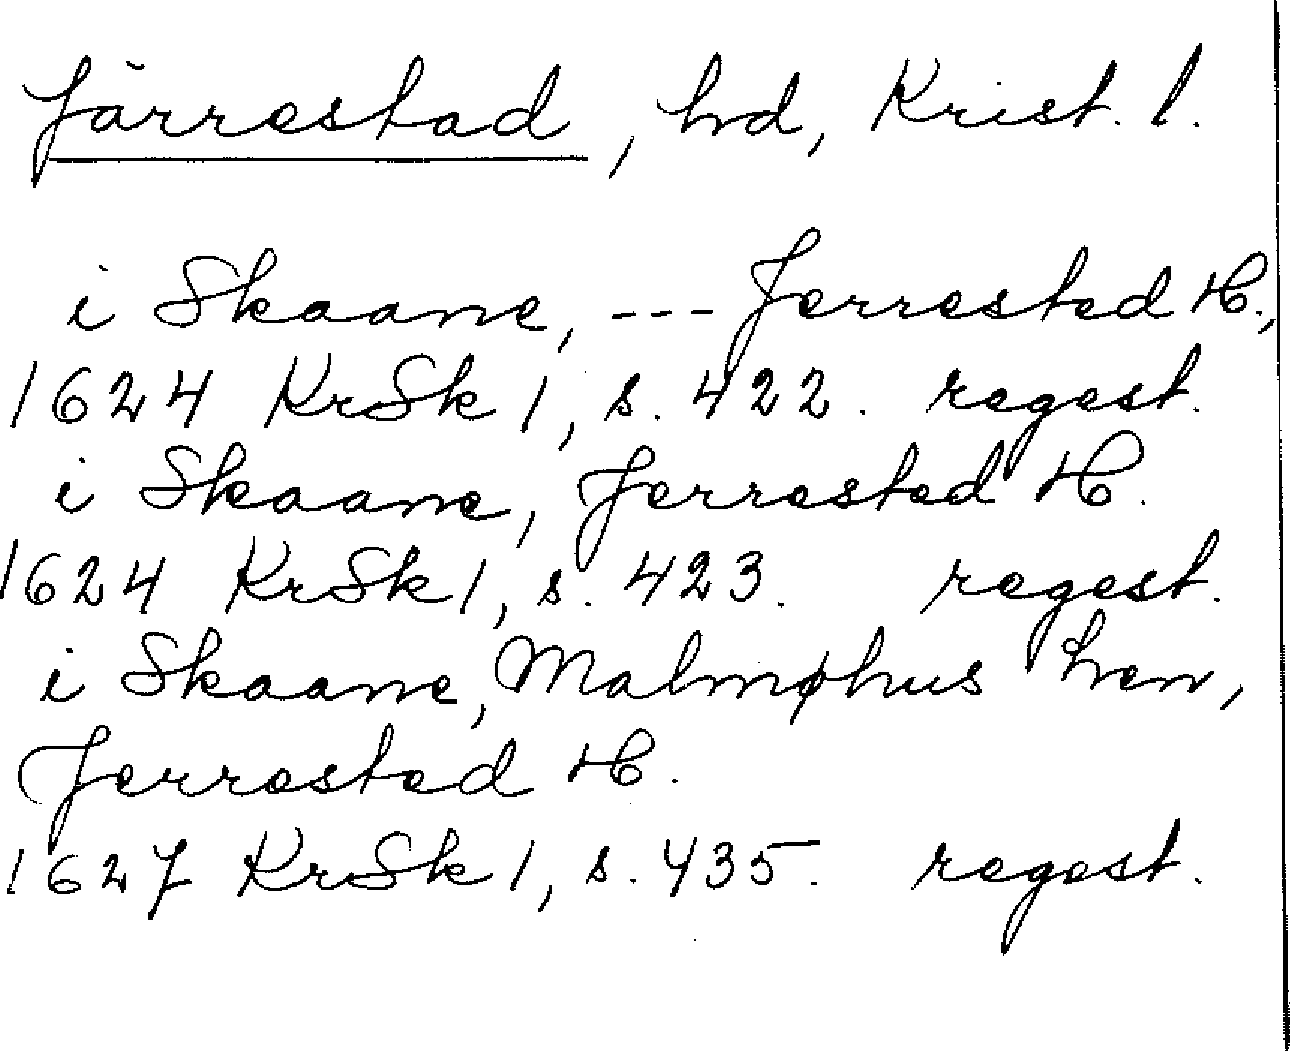 Järrestad, hd, Krist. l.
i Skaane, --- Jerrested H.,
1624 KrSk 1, s. 422. regest.
i Skaane, Jerrested H.
1624 KrSk 1, s. 423. regest.
i Skaane, Malmøhus Len,
Jerrested H.
1627 KrSk 1, s. 435. regest.